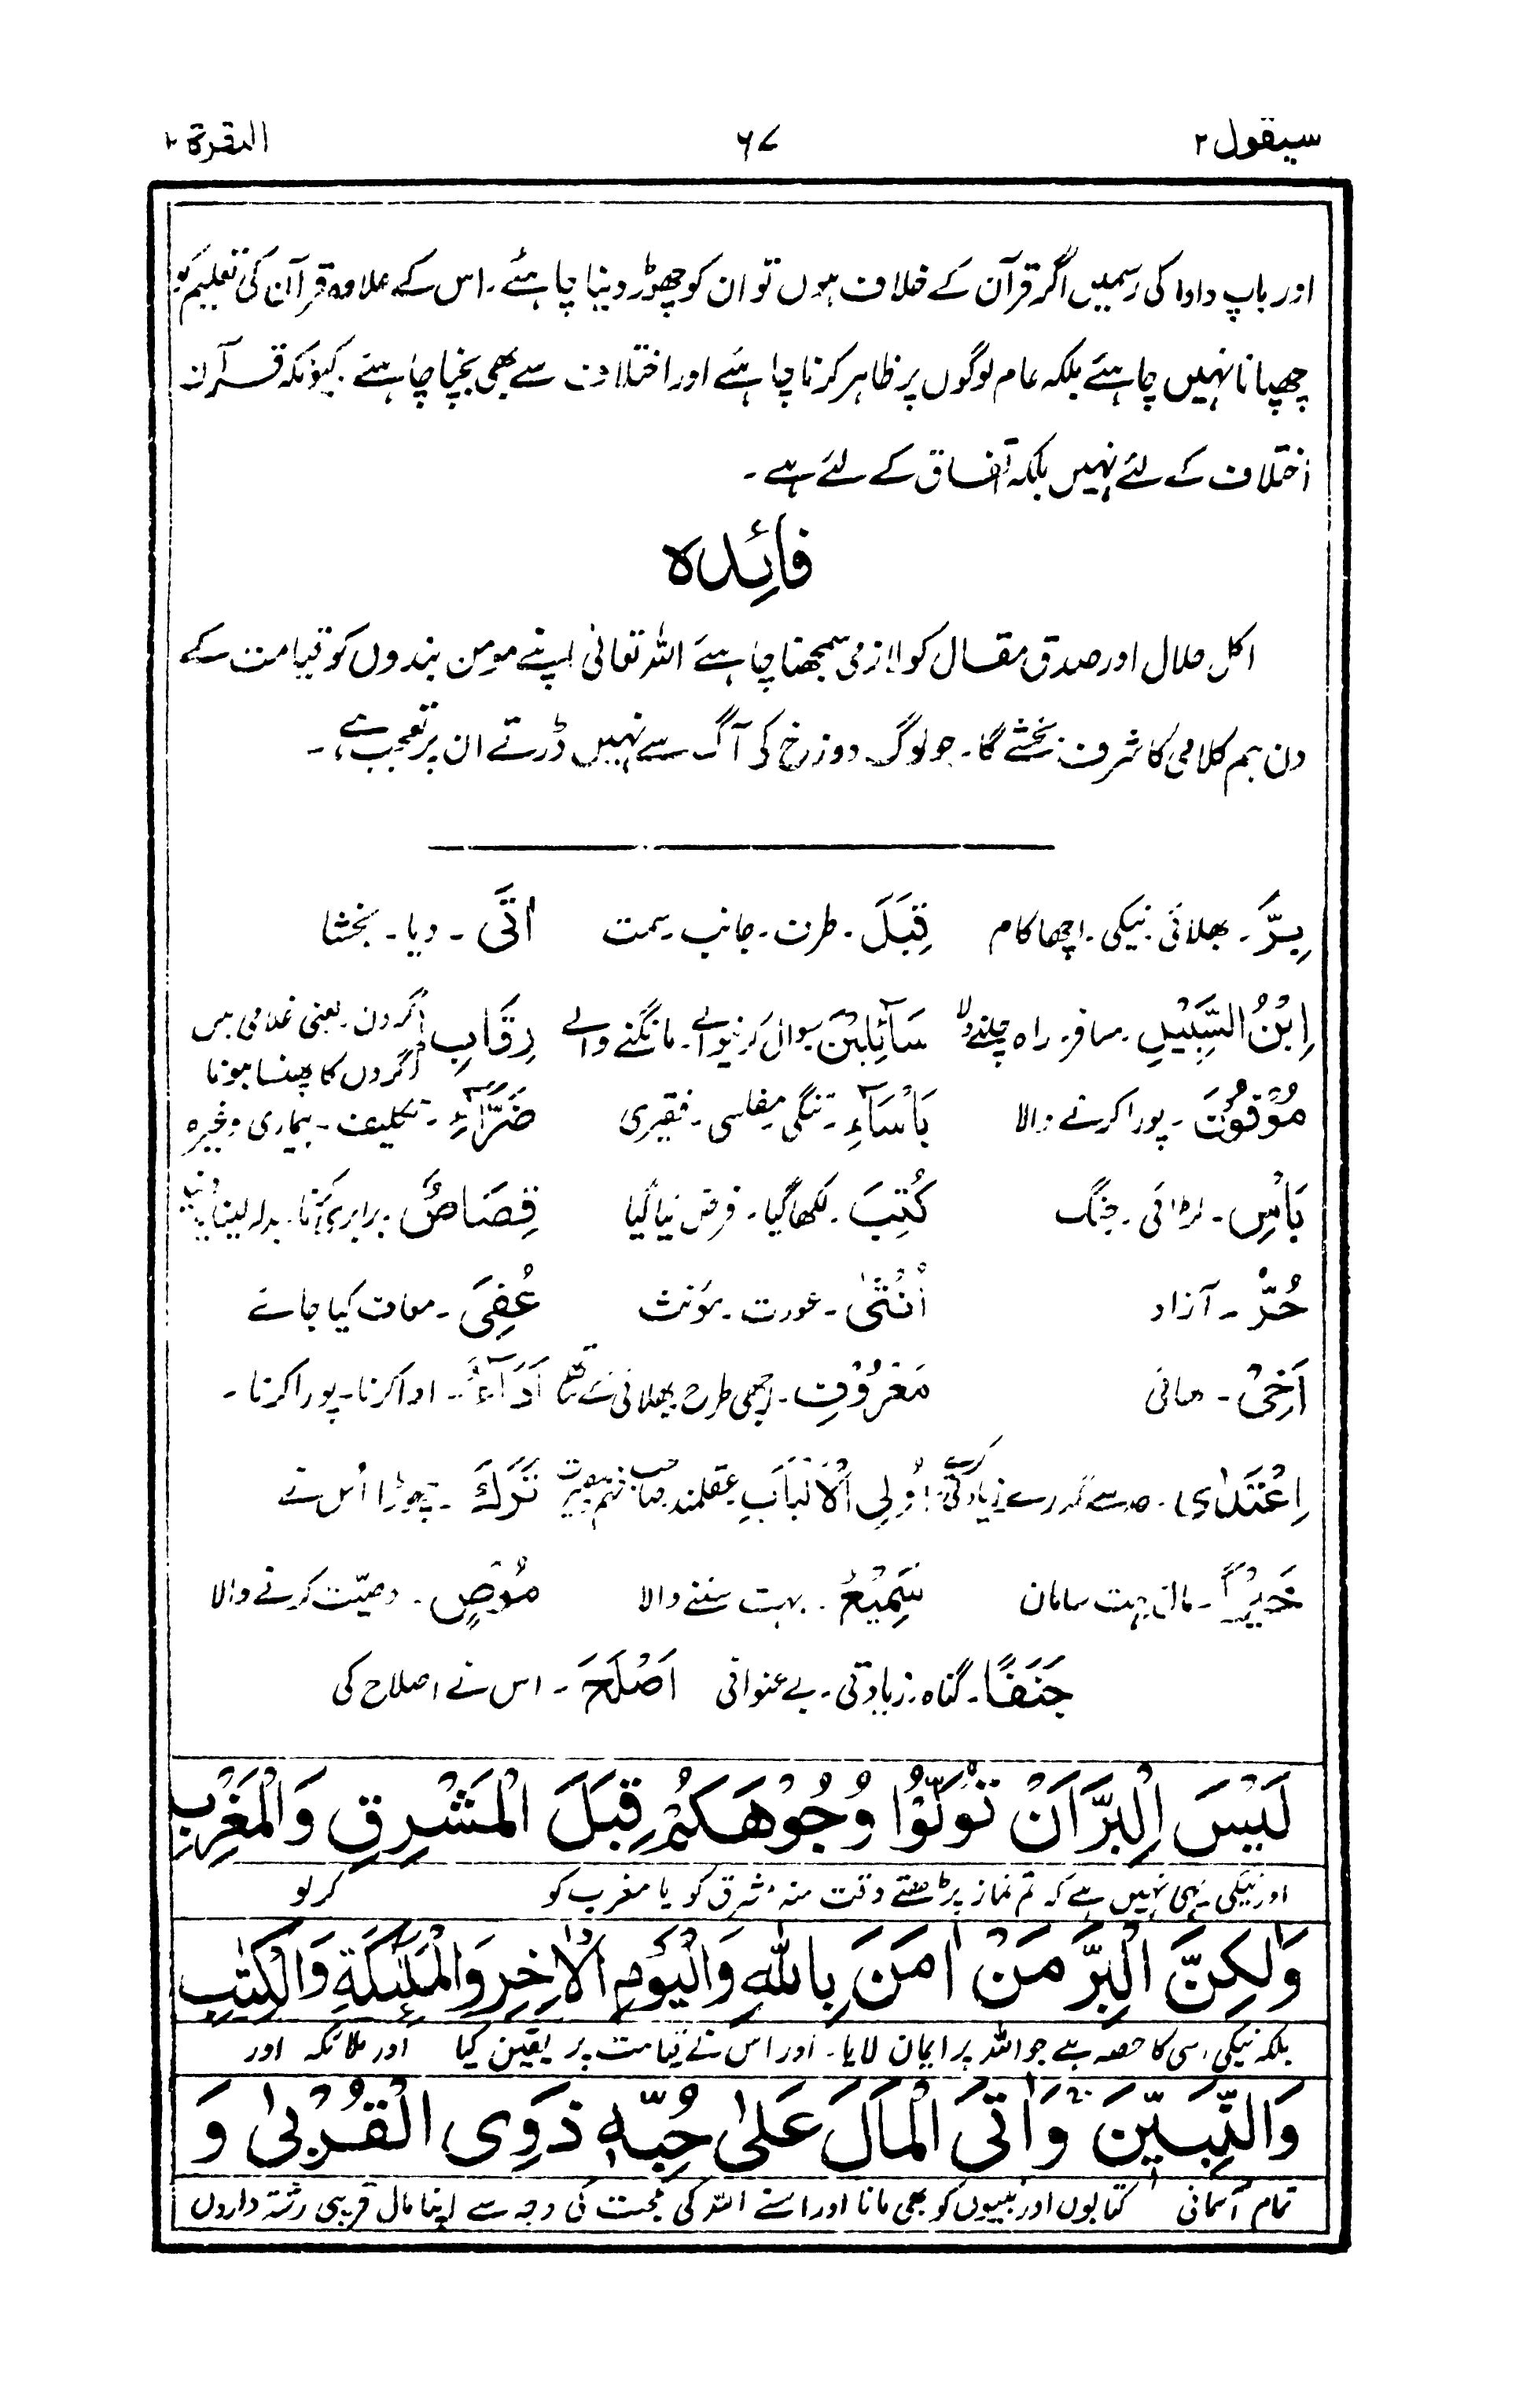 سیقول ۲
۶۷
البقرة ۲
اور باپ دادا کی رسمیں اگر قرآن کے خلاف ہوں تو ان کو چھوڑ دینا چاہئے۔ اس کے علاوہ قرآن کی تعلیم کو
چھپانا نہیں چاہئے بلکہ عام لوگوں پر ظاہر کرنا چاہئے اور اختلاف سے بھی بچنا چاہئے۔ کیونکہ قرآن
اختلاف کے لئے نہیں بلکہ اتفاق کے لئے ہے۔
فَائِدہ
اکل حلال اور صدق مقال کو لازمی سمجھنا چاہئے اللہ تعالیٰ اپنے مومن بندوں کو قیامت کے
دن ہم کلامی کا شرف بخشے گا۔ جو لوگ دوزخ کی آگ سے نہیں ڈرتے ان پر تعجب ہے۔
بِرَّ۔ بھلائی۔ نیکی۔ اچھا کام قِبَلَ۔ طرف۔ جانب۔ سمت اٰتَى۔ دیا۔ بخشا
اِبْنُ السَّبِيْلِ۔ مسافر۔ راہ چلنے والا سَآئِلِيْنَ سوال کرنیوالے۔ مانگنے والے رِقَابِ گردن۔ یعنی غلامی میں
گردن کا پھنسا ہونا
مُوْفُوْنَ۔ پورا کرنے والا بَاْسَآءِ۔ تنگی مفلسی۔ فقیری ضَرَّآءِ۔ تکلیف۔ بیماری وغیرہ
بَاْسِ۔ لڑائی۔ جنگ كُتِبَ۔ لکھا گیا۔ فرض کیا گیا قِصَاصُ۔ برابری کرنا۔ بدلہ لینا
حُرُّ۔ آزاد اُنْثٰى۔ عورت۔ مؤنث عُفِىَ۔ معاف کیا جائے
اَخِىْ۔ بھائی مَعْرُوْفِ۔ اچھی طرح بھلائی کے ساتھ اَدَآءٌ۔ ادا کرنا۔ پورا کرنا۔
اِعْتَدٰى۔ حد سے گذرے زیادتی کرے اُولِى الْاَلْبَابِ عقلمند صاحب فہم بصیرت تَرَكَ۔ چھوڑا اُس نے
خَيْرًا۔ مال۔ بہت سامان سَمِيْعٌ۔ بہت سننے والا مُوْصٍ۔ وصیّت کرنے والا
جَنَفًا۔ گناہ۔ زیادتی۔ بے عنوانی اَصْلَحَ۔ اس نے اصلاح کی
لَيْسَ الْبِرَّ اَنْ تُوَلُّوْا وُجُوْهَكُمْ قِبَلَ الْمَشْرِقِ وَالْمَغْرِبِ
اور نیکی یہی نہیں ہے کہ تم نماز پڑھتے وقت منہ مشرق کو یا مغرب کو کر لو
وَلٰكِنَّ الْبِرَّ مَنْ اٰمَنَ بِاللهِ وَالْيَوْمِ الْاٰخِرِ وَالْمَلٰٓئِكَةِ وَالْكِتٰبِ
بلکہ نیکی اسی کا حصہ ہے جو اللہ پر ایمان لایا۔ اور اس نے قیامت پر یقین کیا اور ملائکہ اور
وَالنَّبِيّٖنَ وَاٰتَى الْمَالَ عَلٰى حُبِّهٖ ذَوِى الْقُرْبٰى وَ
تمام آسمانی کتابوں اور نبیوں کو بھی مانا اور اسنے اللہ کی محبت کی وجہ سے اپنا مال قریبی رشتہ داروں